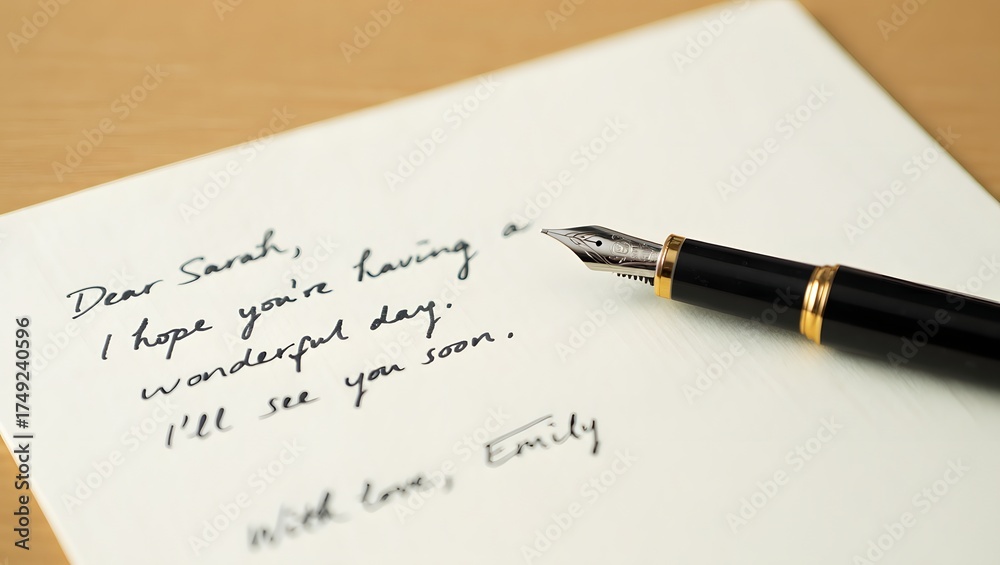 Dear Sarah,
I hope you're having a
wonderful day.
I'll see you soon.
With love, Emily
Adobe Stock | #1749240596